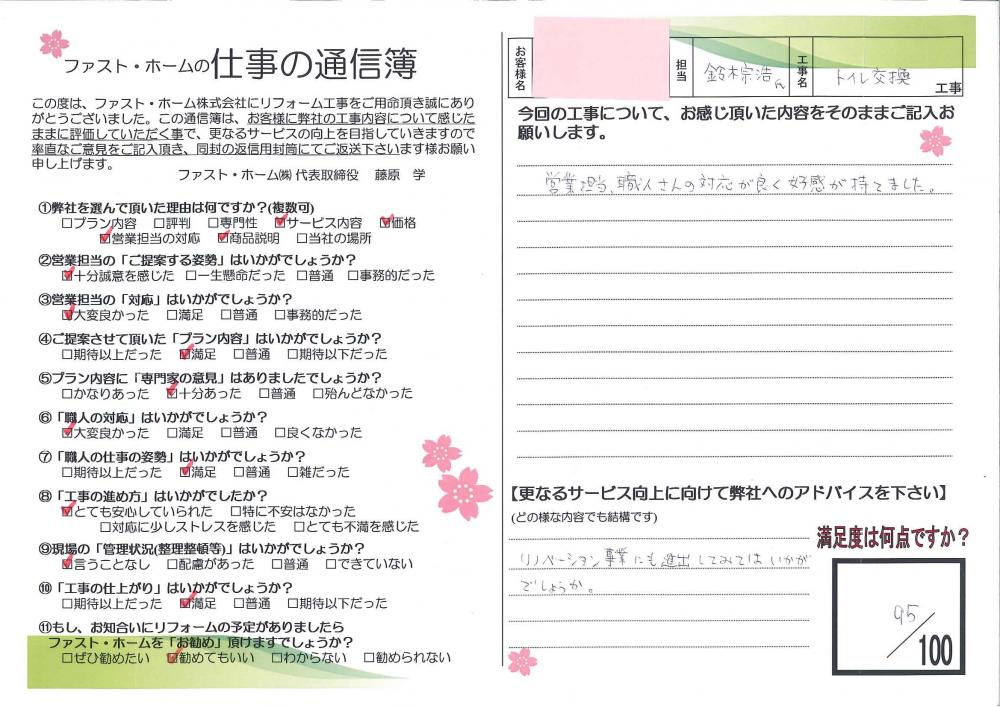 ファスト・ホームの仕事の通信簿
この度は、ファスト・ホーム株式会社にリフォーム工事をご用命頂き誠にあり
がとうございました。この通信簿は、お客様に弊社の工事内容について感じた
ままに評価していただく事で、更なるサービスの向上を目指していきますので
率直なご意見をご記入頂き、同封の返信用封筒にてご返送下さいます様お願い
申し上げます。
ファスト・ホーム㈱ 代表取締役 藤原 学
①弊社を選んで頂いた理由は何ですか？(複数可)
□プラン内容 □評判 □専門性 ☑サービス内容 ☑価格
☑営業担当の対応 ☑商品説明 □当社の場所
②営業担当の「ご提案する姿勢」はいかがでしょうか？
☑十分誠意を感じた □一生懸命だった □普通 □事務的だった
③営業担当の「対応」はいかがでしょうか？
☑大変良かった □満足 □普通 □事務的だった
④ご提案させて頂いた「プラン内容」はいかがでしょうか？
□期待以上だった ☑満足 □普通 □期待以下だった
⑤プラン内容に「専門家の意見」はありましたでしょうか？
□かなりあった ☑十分あった □普通 □殆んどなかった
⑥「職人の対応」はいかがでしょうか？
☑大変良かった □満足 □普通 □良くなかった
⑦「職人の仕事の姿勢」はいかがでしょうか？
□期待以上だった ☑満足 □普通 □雑だった
⑧「工事の進め方」はいかがでしたか？
☑とても安心していられた □特に不安はなかった
□対応に少しストレスを感じた □とても不満を感じた
⑨現場の「管理状況(整理整頓等)」はいかがでしょうか？
☑言うことなし □配慮があった □普通 □できていない
⑩「工事の仕上がり」はいかがでしょうか？
□期待以上だった ☑満足 □普通 □期待以下だった
⑪もし、お知合いにリフォームの予定がありましたら
ファスト・ホームを「お勧め」頂けますでしょうか？
□ぜひ勧めたい ☑勧めてもいい □わからない □勧められない
お客様名 担当 鈴木宗浩さん 工事名 トイレ交換 工事
今回の工事について、お感じ頂いた内容をそのままご記入お
願いします。
営業担当、職人さんの対応が良く好感が持てました。
【更なるサービス向上に向けて弊社へのアドバイスを下さい】
(どの様な内容でも結構です)
リノベーション事業にも進出してみてはいかが
でしょうか。
満足度は何点ですか？
95/100